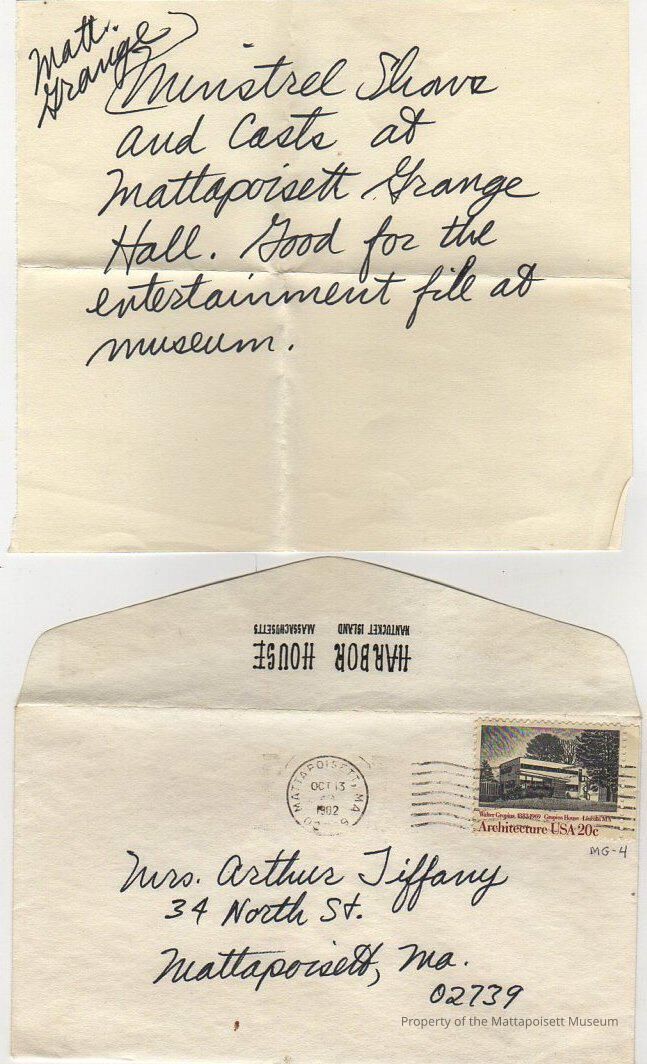 Matt.
Grange
Minstrel Shows
and Casts at
Mattapoisett Grange
Hall. Good for the
entertainment file at
museum.
HARBOR HOUSE
NANTUCKET ISLAND MASSACHUSETTS
MATTAPOISETT, MA
OCT 13
1982
Walter Gropius 1883-1969 Gropius House Lincoln MA
Architecture USA 20c
MG-4
Mrs. Arthur Tiffany
34 North St.
Mattapoisett, Ma.
02739
Property of the Mattapoisett Museum